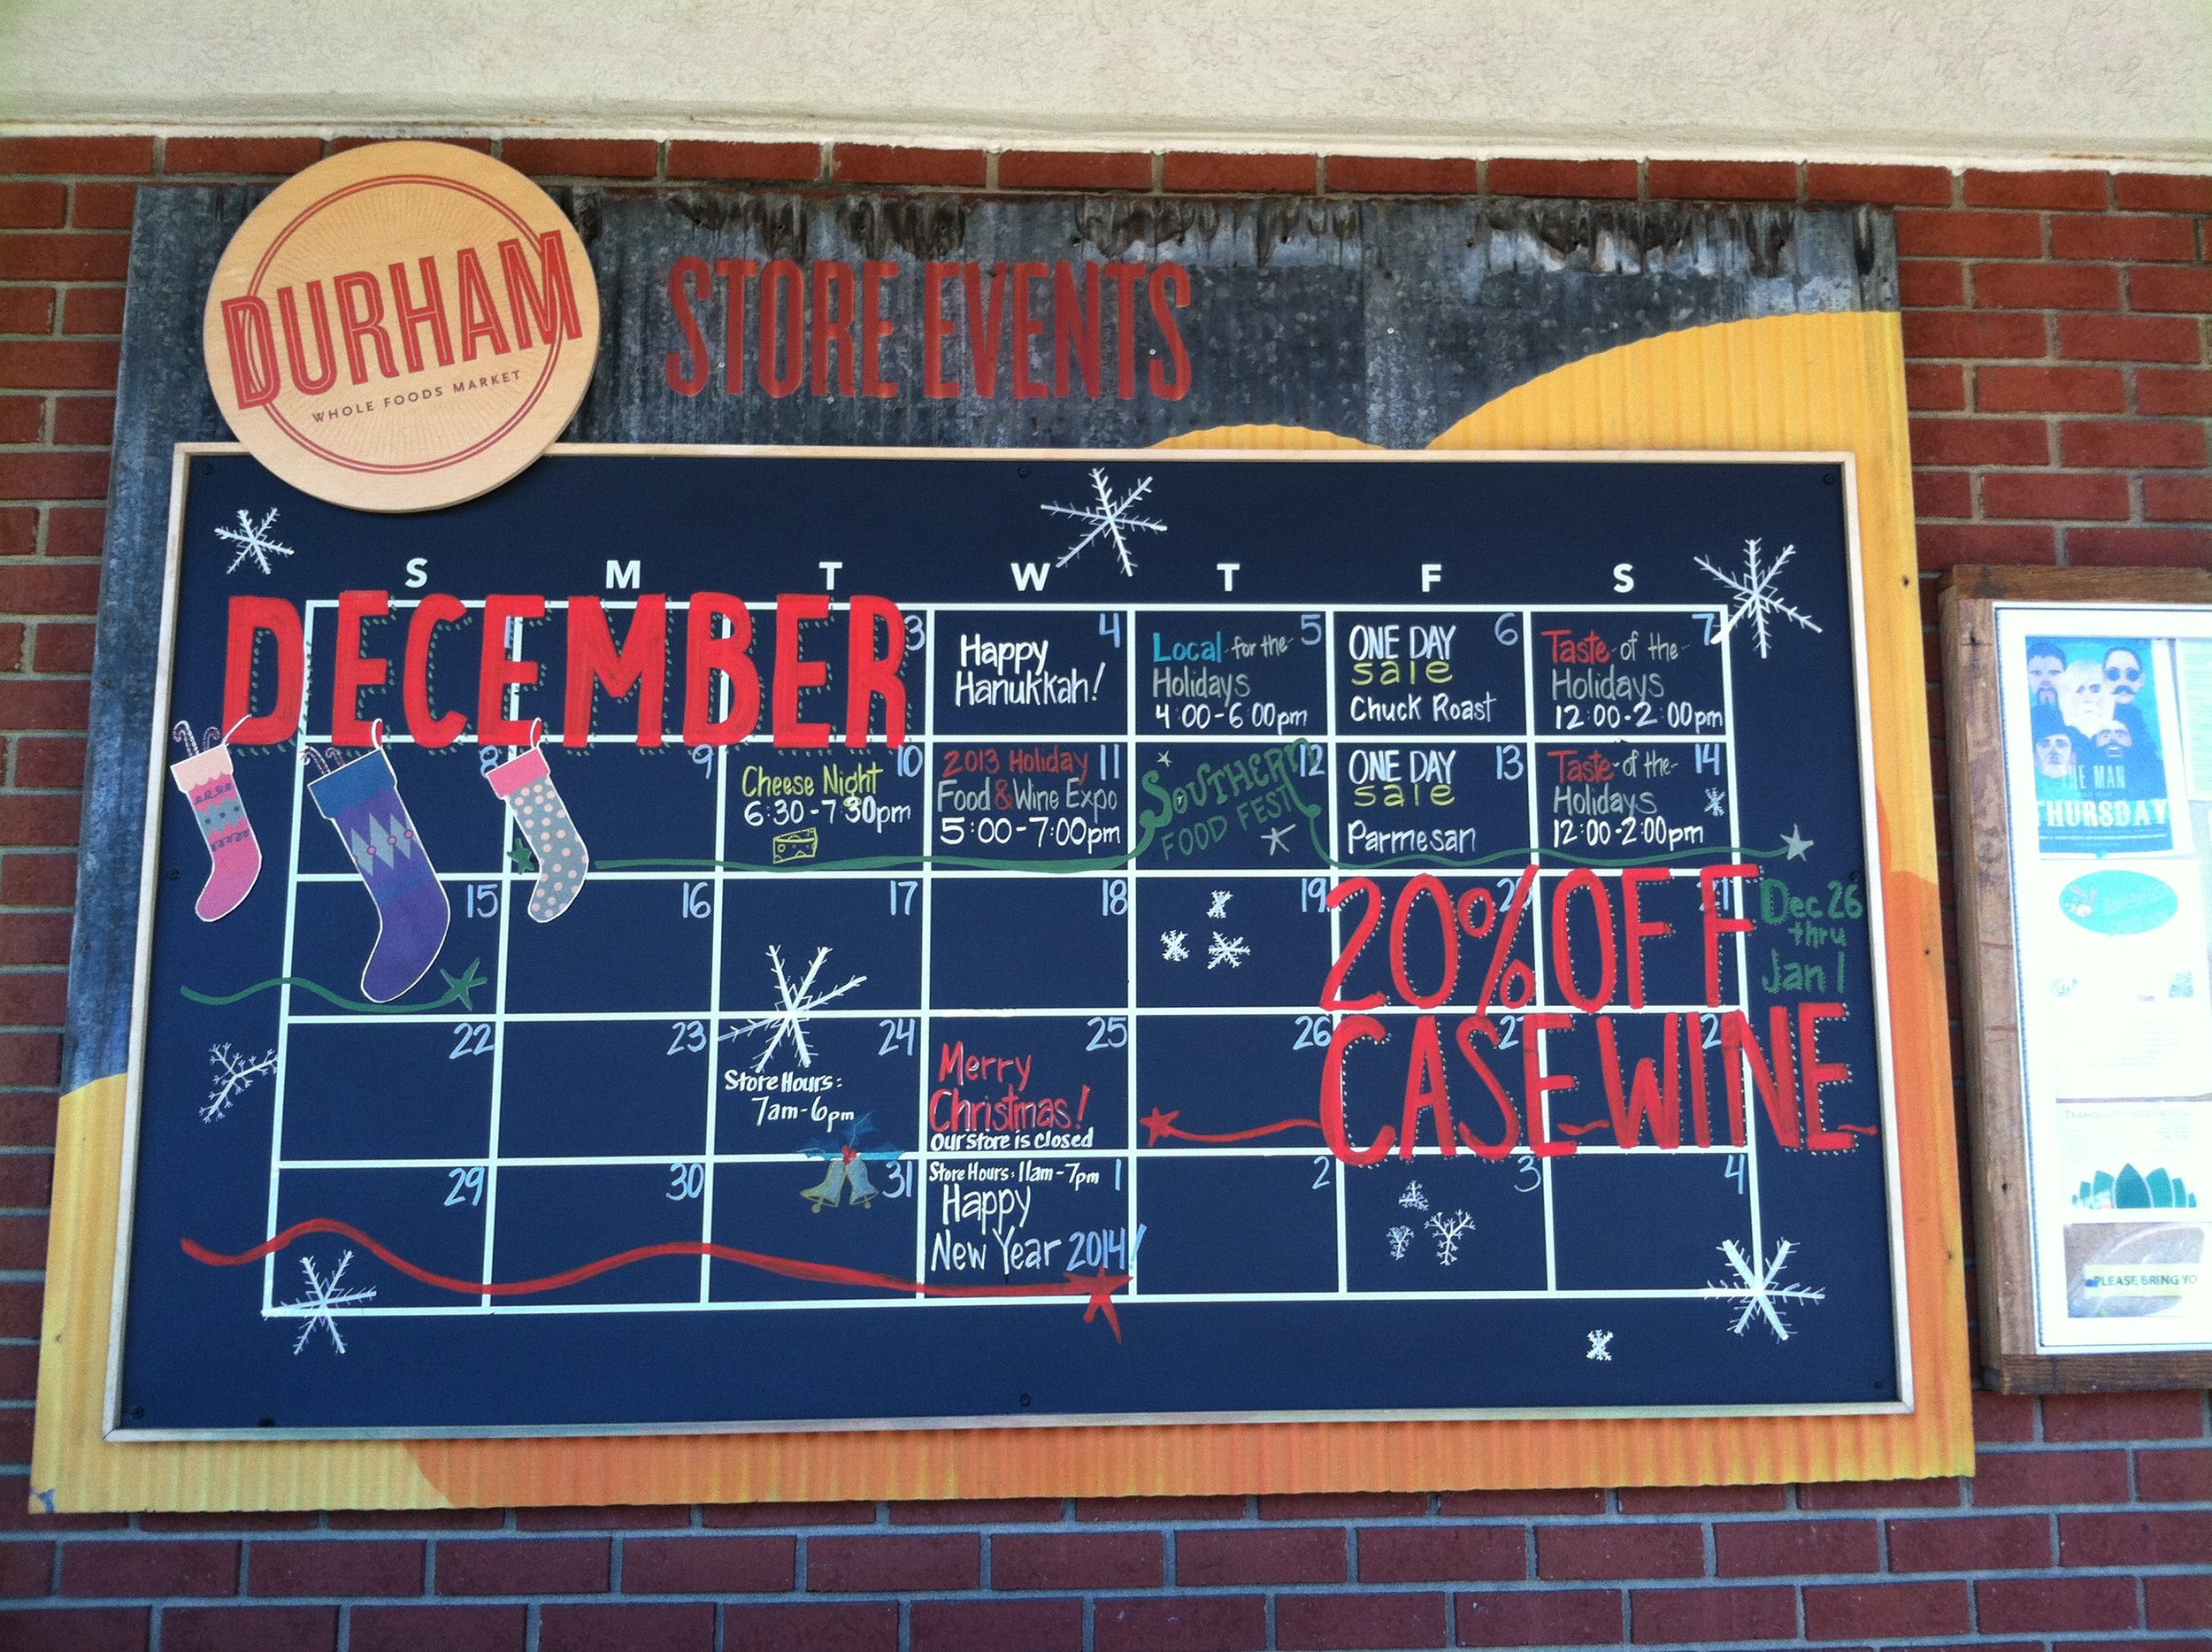 DURHAM
WHOLE FOODS MARKET
STORE EVENTS
S M T W T F S
DECEMBER
3
4
Happy
Hanukkah!
5
Local for the
Holidays
4:00-6:00pm
6
ONE DAY
sale
Chuck Roast
7
Taste of the
Holidays
12:00-2:00pm
8
9
10
Cheese Night
6:30-7:30pm
11
2013 Holiday
Food & Wine Expo
5:00-7:00pm
12
SOUTHERN
FOOD FEST
13
ONE DAY
sale
Parmesan
14
Taste of the
Holidays
12:00-2:00pm
15
16
17
18
19
20
21
20% OFF
CASE WINE
Dec 26
thru
Jan 1
22
23
24
Store Hours:
7am-6pm
25
Merry
Christmas!
Our store is closed
26
29
30
31
1
Store Hours: 11am-7pm
Happy
New Year 2014!
2
3
4
THE MAN
THURSDAY
PLEASE BRING YO